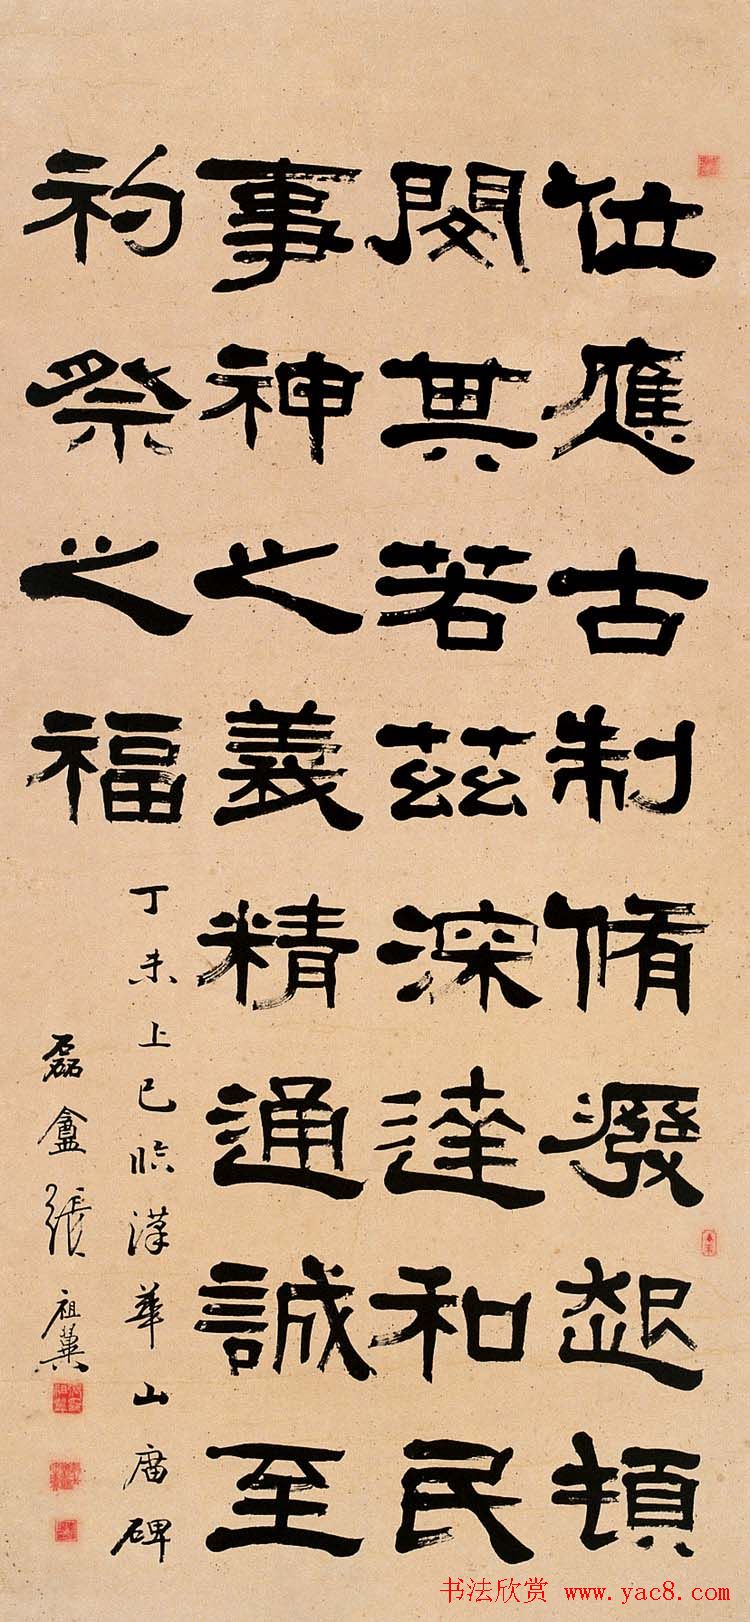 位應古制脩廢起頓
閔其若茲深達和民
事神之義精通誠至
礿祭之福
丁未上巳臨漢華山廟碑
磊盦張祖翼
书法欣赏 www.yac8.com